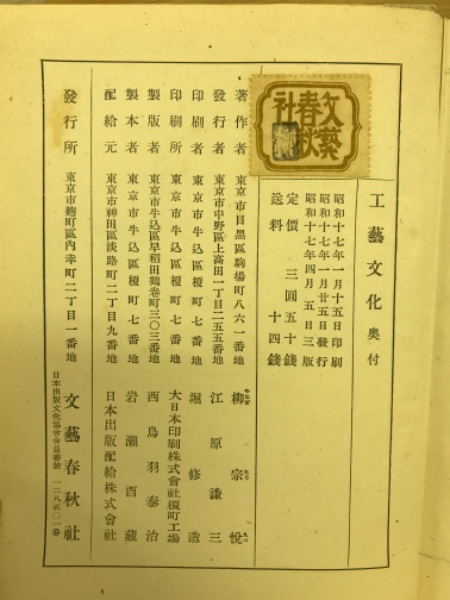 工藝文化 奥付
昭和十七年一月十五日印刷
昭和十七年一月廿五日發行
昭和十七年四月五日三版
定價 三圓五十錢
送料 十四錢
文藝春秋社
著作者 東京市目黑區駒場町八六一番地 柳宗悅
發行者 東京市中野區上高田一丁目二五五番地 江原謙三
印刷者 東京市牛込區榎町七番地 堀修造
印刷所 東京市牛込區榎町七番地 大日本印刷株式會社榎町工場
製版者 東京市牛込區早稻田鶴巻町三〇三番地 西鳥羽泰治
製本者 東京市牛込區榎町七番地 岩瀨酉藏
配給元 東京市神田區淡路町二丁目九番地 日本出版配給株式會社
發行所 東京市麴町區內幸町二丁目一番地 文藝春秋社
日本出版文化協會會員番號 一二八五〇一番